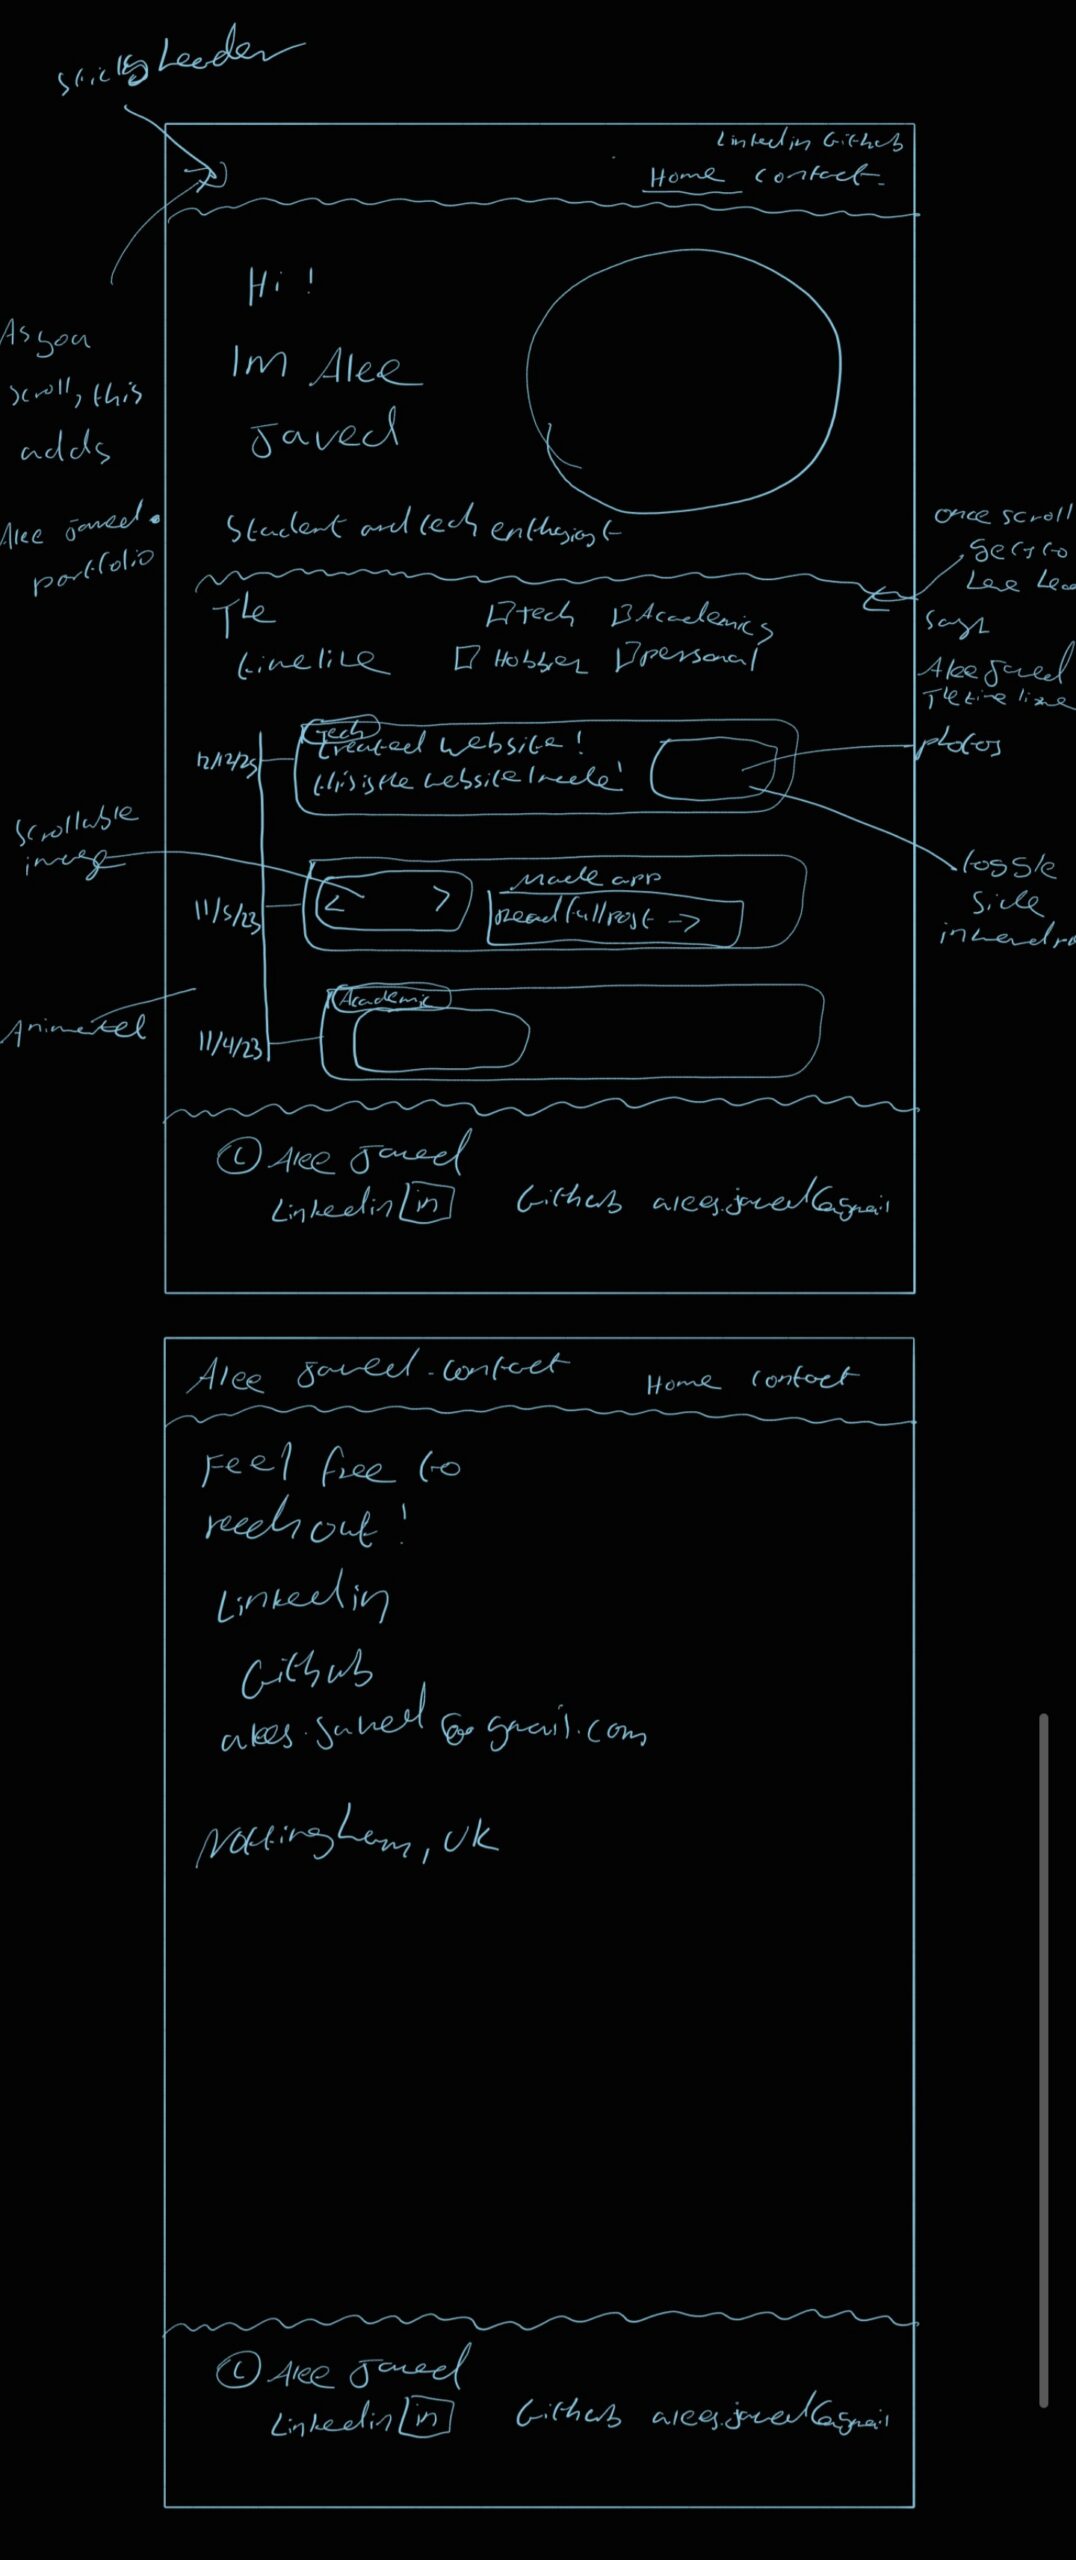 sticky header
Linkedin Github
Home Contact
Hi !
Im Alee
Javed
As you
scroll, this
adds
Alee Javed.
portfolio
Student and tech enthusiast
once scroll
gets to
here
says
Alee Javed
The timeline
The
timeline
tech Academics
Hobbies personal
12/12/23
Tech
Created website!
this is the website I made!
photos
toggle
side
Scrollable
image
11/5/23
< >
Made app
Read full post ->
Animated
11/4/23
Academic
© Alee Javed
Linkedin in Github alees.javed@gmail
Alee Javed - Contact Home Contact
Feel free to
reach out!
Linkedin
Github
alees.javed@gmail.com
Nottingham, UK
© Alee Javed
Linkedin in Github alees.javed@gmail